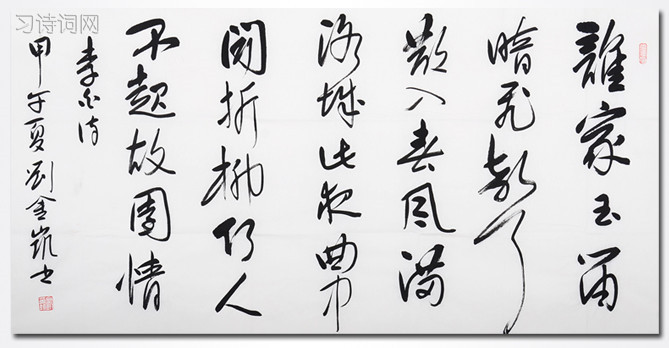 习诗词网
誰家玉笛
暗飛聲
散入春風滿
洛城此夜曲中
聞折柳何人
不起故園情
李白詩
甲午夏劉金凱书